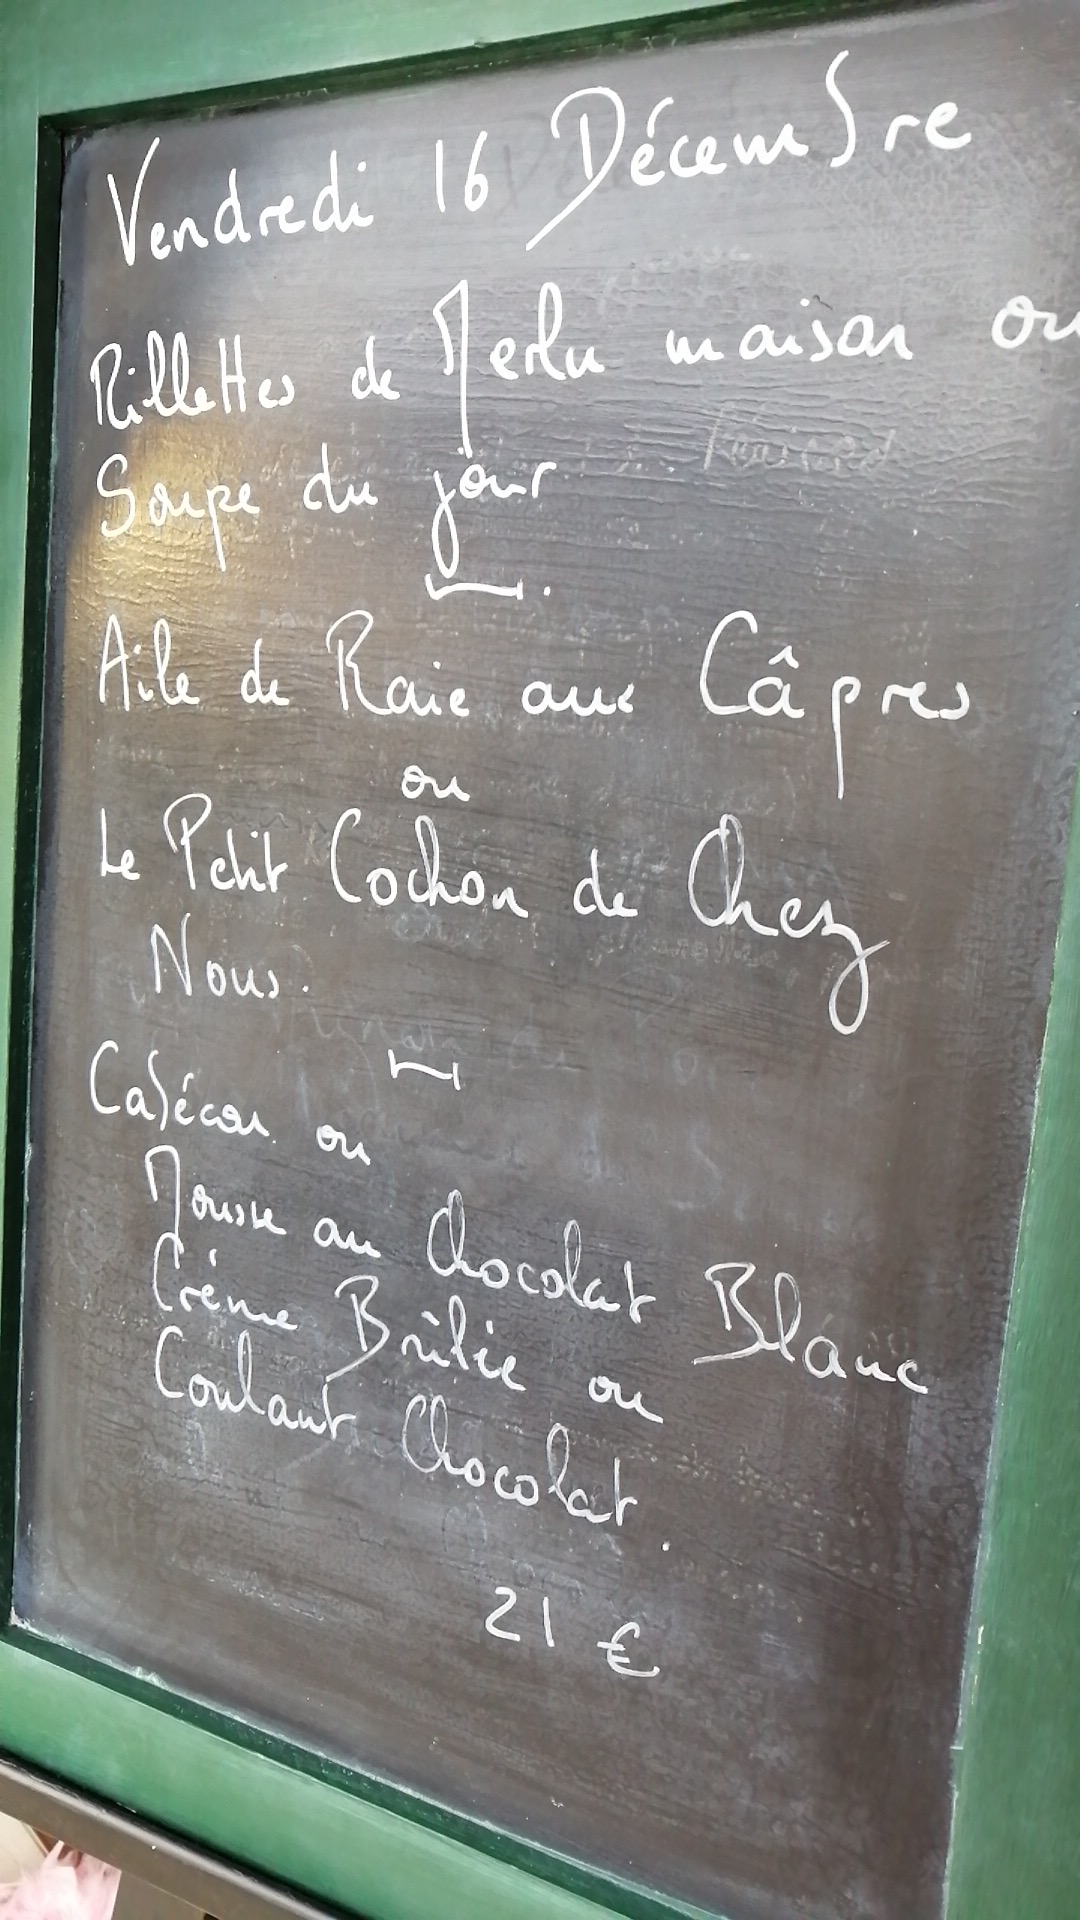 Vendredi 16 Décembre
Rillettes de Merlu maison ou
Soupe du jour
Aile de Raie aux Câpres
ou
Le Petit Cochon de Chez
Nous.
Cabécou ou
Mousse au Chocolat Blanc
Crème Brûlée ou
Coulant Chocolat.
21 €